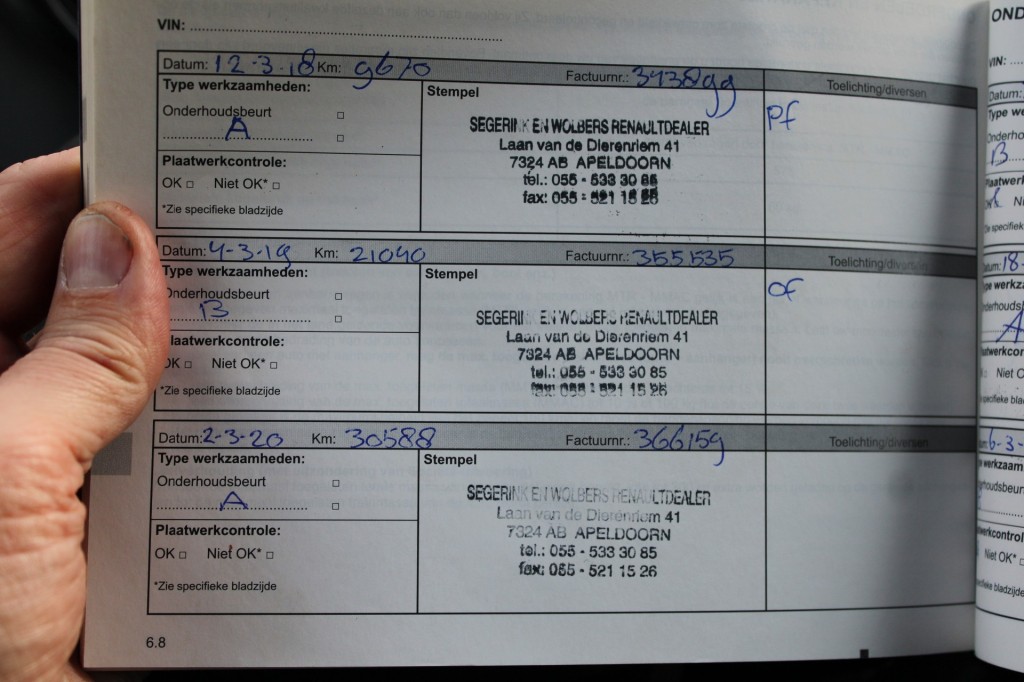 VIN:
Datum: 12-3-18 Km: 9670 Factuurnr.: 343899 Toelichting/diversen
Type werkzaamheden:
Onderhoudsbeurt
A
Plaatwerkcontrole:
OK Niet OK*
*Zie specifieke bladzijde
Stempel
SEGERINK EN WOLBERS RENAULTDEALER
Laan van de Dierenriem 41
7324 AB APELDOORN
tel.: 055 - 533 30 85
fax: 055 - 521 15 26
pf
Datum: 4-3-19 Km: 21040 Factuurnr.: 355535 Toelichting/diversen
Type werkzaamheden:
Onderhoudsbeurt
B
Plaatwerkcontrole:
OK Niet OK*
*Zie specifieke bladzijde
Stempel
SEGERINK EN WOLBERS RENAULTDEALER
Laan van de Dierenriem 41
7324 AB APELDOORN
tel.: 055 - 533 30 85
fax: 055 - 521 15 26
of
Datum: 2-3-20 Km: 30588 Factuurnr.: 366159 Toelichting/diversen
Type werkzaamheden:
Onderhoudsbeurt
A
Plaatwerkcontrole:
OK Niet OK*
*Zie specifieke bladzijde
Stempel
SEGERINK EN WOLBERS RENAULTDEALER
Laan van de Dierenriem 41
7324 AB APELDOORN
tel.: 055 - 533 30 85
fax: 055 - 521 15 26
6.8
OND
VIN:
Datum:
Type we
B
A
Niet OK*